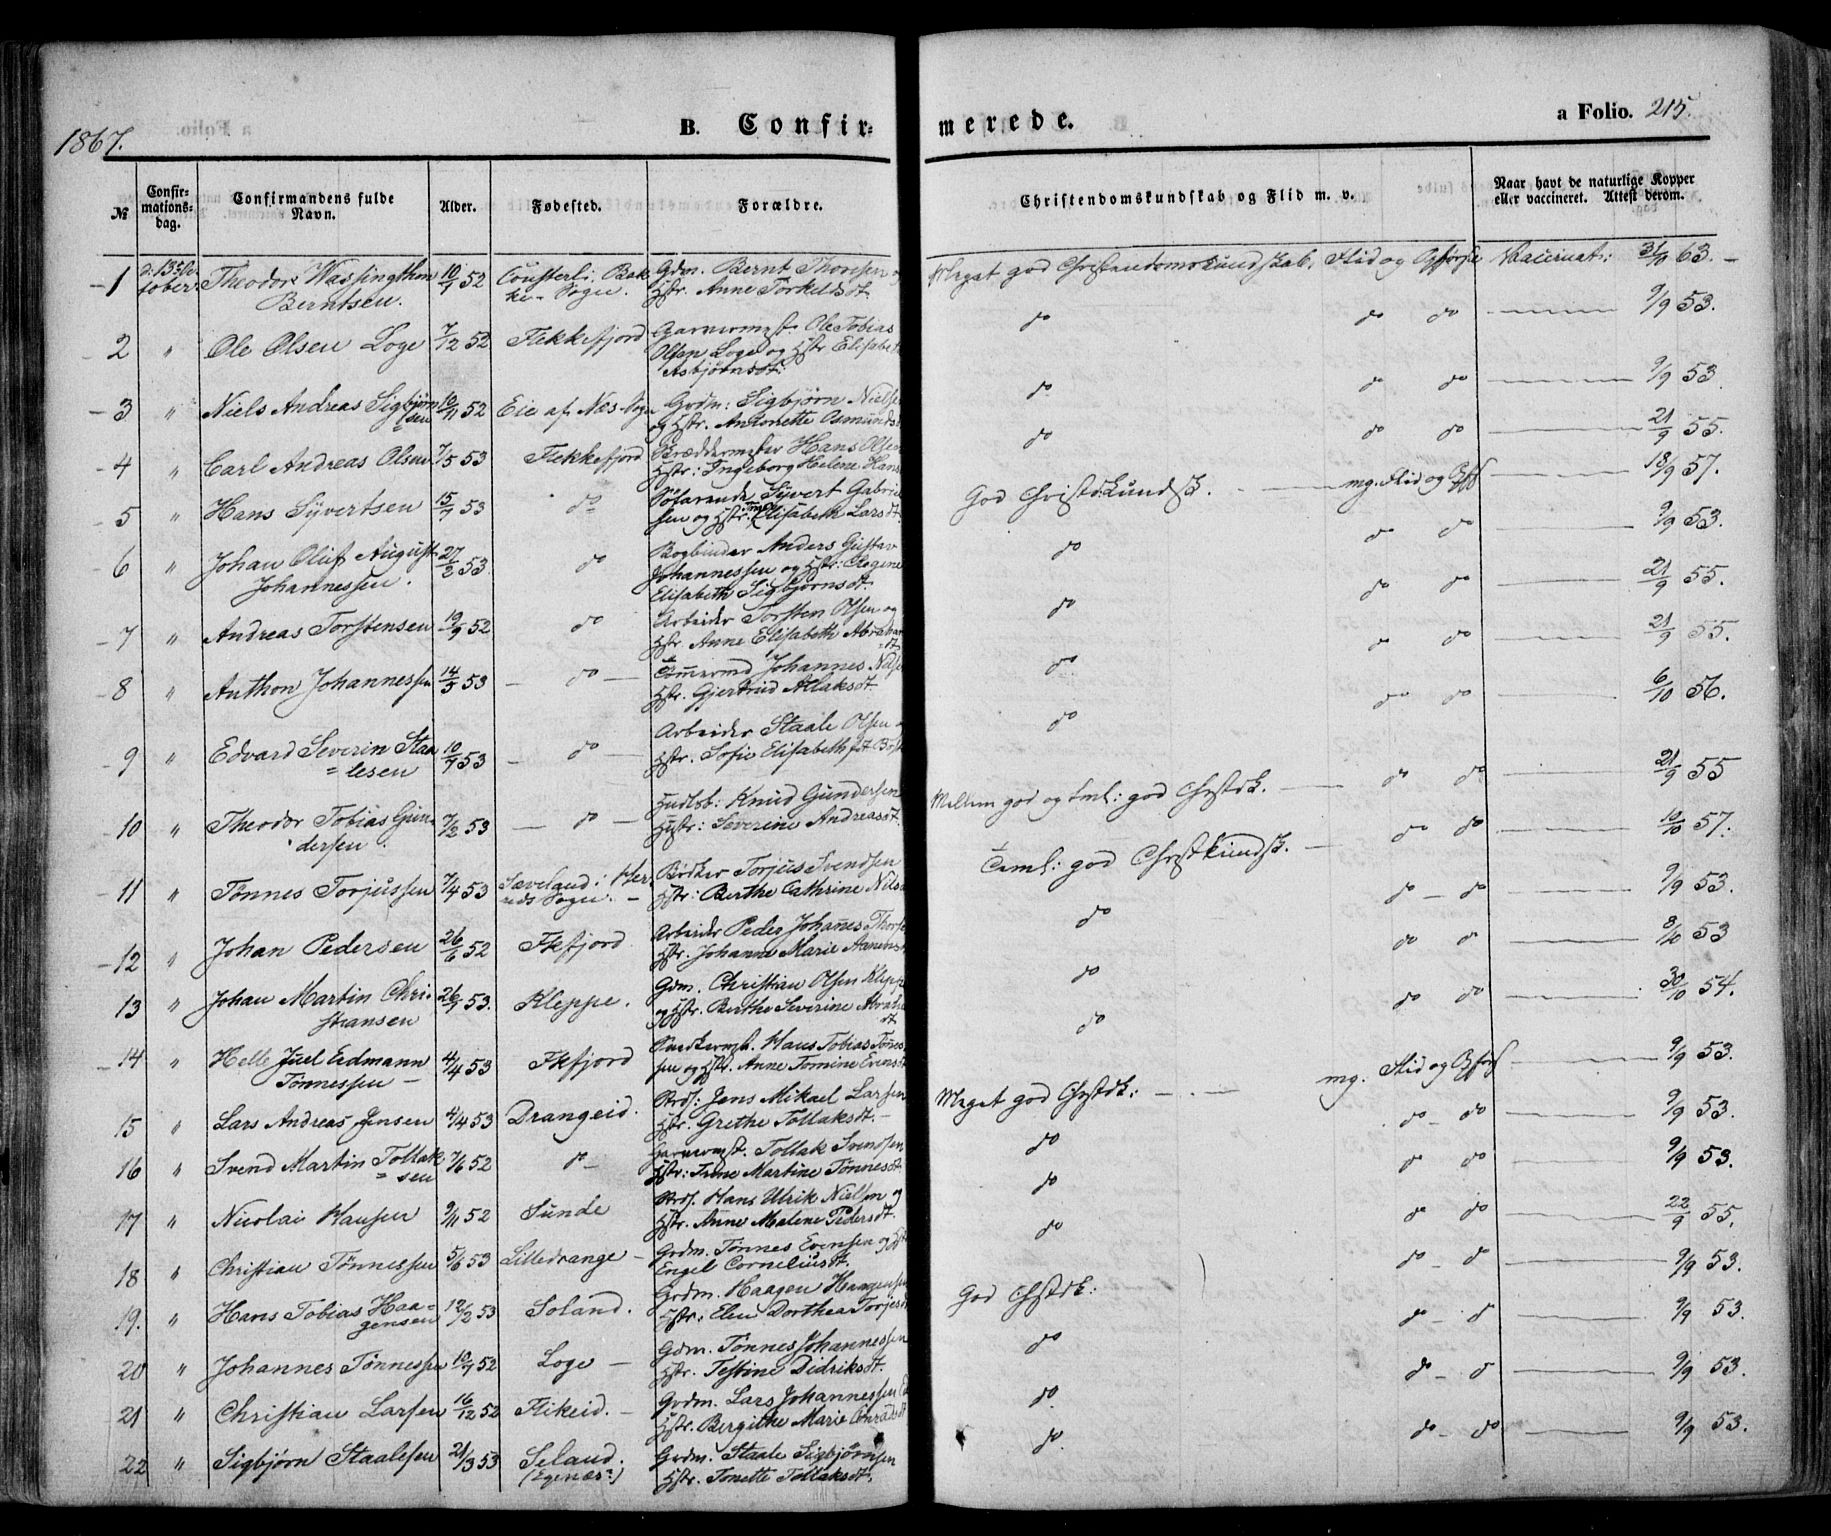 1867.
B. Confir-
merede.
a Folio. 215.
№
Confir-
mations-
dag.
Confirmandens fulde
Navn.
Alder.
Fødested.
Forældre.
Christendomskundskab og Flid m. v.
Naar havt de naturlige Kopper
eller vaccineret. Attest derom.
1 Theodor Wassingthon 10/7 52 Gdm. Bernt Thorsen og
Berntsen. Sogn. Hstr. Anne Torkelsdt.
Meget god Christendomskundskab, Flid og Opførsel Vaccinat: 31/10 63.
2 " Ole Olsen Loge 7/12 52 Flekkefjord Garvermst. Ole Tobias
Olsen Loge og Hstr Elisabeth
Asbjørnsdt:
do do do 9/9 53.
3 " Niels Andreas Sigbjørn- 10/11 52 Eie af Næs Sogn Grdm: Sigbjørn Nielsen
sen og Hstr. Antonette Osmundsd
do do do 9/9 53
4 " Carl Andreas Olsen 7/5 53 Flekkefjord Hans Olsen
Hstr: Ingeborg Helene Hans
do do do 21/9 55.
5 " Hans Syvertsen 15/7 53 do Søfarende Syvert Gabriel
sen og Hstr. Elisabeth Larsdt.
God Christdkundsk. mg. Flid og Opf 18/9 57.
6 " Johan Oluf August 27/2 53 do Bogbinder Anders Gustav
Johannessen. Johannessen og Hstr: Regine
Elisabeth Sigbjørnsdt.
do do do 9/9 53.
7 " Andreas Torstensen 19/9 52 do Arbeider Torsten Olsen og
Hstr Anne Elisabeth Abraham
dt
do do do 21/9 55.
8 " Anthon Johannessen 14/5 53 do Tømermd Johannes Nilse
Hstr. Gjertrud Atlaksdt.
do do do 21/9 55.
9 " Edvard Severin Staa 10/7 53 do Arbeider Staale Olsen
lesen Hstr. Sofie Elisabeth
do do do 6/10 56.
10 " Theodor Tobias Gun- 7/2 53 do Hudlsb: Knud Gundersen
dersen. Hustr: Severine Andreasdt.
Mellem god og tml: god Chrstdk. do do 21/9 55
11 " Tønnes Torjussen 7/4 53 Sæveland i Her- Bødker Torjus Svendsen
reds Sogn. Hstr: Berthe Cathrine Nils
Teml: god Chrstkundsk. do do 10/10 57.
12 " Johan Pedersen 26/6 52 Fkfjord. Arbeider Peder Johanes Thors
Hstr. Johanne Marie
do do do 9/9 53.
13 " Johan Martin Chri- 26/7 53. Kleppe. Gdm. Christian Olsen Kleppe
stiansen og Hstr. Berthe Severine Abraha
dt
do do do 8/10 53
14 " Helle Juel Erdmann 4/4 53 Fkfjord Snedkermst. Hans Tobias Tønes-
Tønnessen sen og Hstr. Anne Tomine Evensdt
do do do 30/10 54.
15 " Lars Andreas Jensen 4/4 53 Drangeid. Grdj: Jens Mikael Larsen
Hstr. Grethe Tollaksdt.
Meget god Chrstdk: mg. Flid og Opførs 9/9 53.
16 " Svend Martin Tollak 7/6 52 do Garvermst. Tollak Svendsen
sen Hstr: Trine Martine Tønnesdt.
do do do 9/9 53.
17 " Nicolai Hansen 9/11 52 Sunde Grdj. Hans Ulrik Nielsen og
Hstr. Anne Malene Pedersdt.
do do do 9/9 53.
18 " Christian Tønnessen 5/6 53 Lilledrange Grdm. Tønnes Evensen og Hst
Engel Corneliusdt.
do do do 22/9 55.
19. " Hans Tobias Haa- 12/2 53 Soland. Grdm. Haagen Haagensen
gensen Hstr: Elen Dorthea Torjesd
God Chrstdk: do do 9/9 53.
20 " Johannes Tønnessen 10/7 52 Loge Gdm. Tønnes Johannessen
Hstr. Testine Didriksdt.
do do do 9/9 53.
21 " Christian Larsen 16/12 52 Flikeid. Grdm. Lars Johannessen
Hstr. Bergithe Marie Conradsdt
do do do 9/9 53.
22 " Sigbjørn Staalesen 21/3 53 Seland. Grdm. Staale Sigbjørnsen
(Egenæs) Hstr. Tonette Tollaksdt.
do do do 9/9 53.